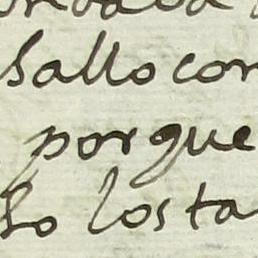 sallo con
porque
so los ta